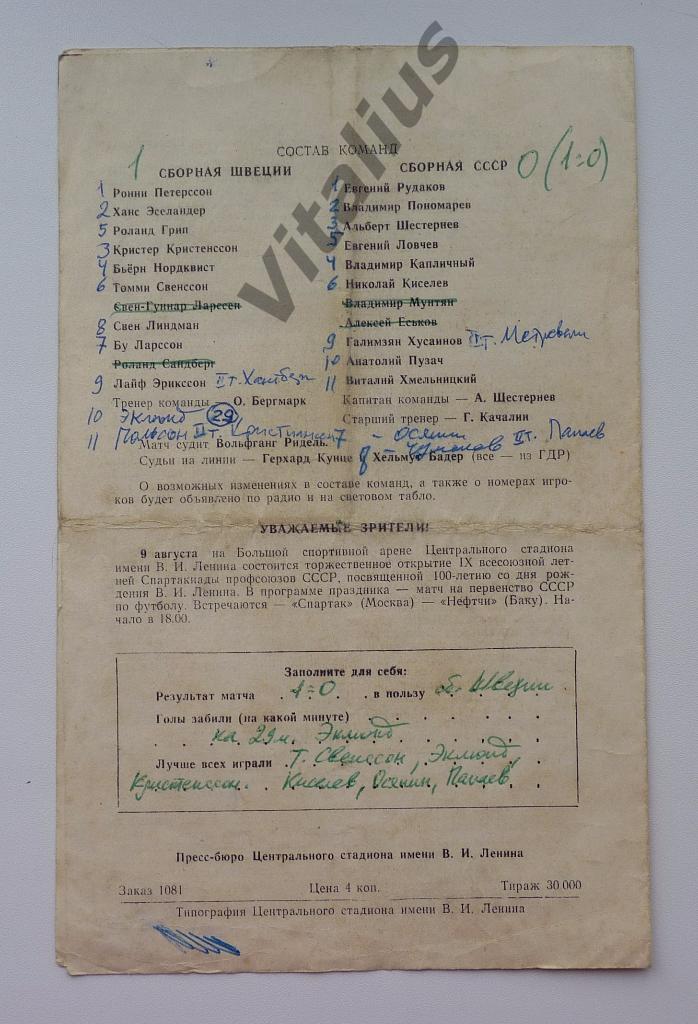 СОСТАВ КОМАНД
1 СБОРНАЯ ШВЕЦИИ
1 Ронни Петерссон
2 Ханс Эселандер
5 Роланд Грип
3 Кристер Кристенссон
4 Бьёрн Нордквист
6 Томми Свенссон
Свен-Гуннар Ларссен
8 Свен Линдман
7 Бу Ларссон
Роланд Сандберг
9 Лайф Эрикссон II т.
Тренер команды — О. Бергмарк
10 Эклюнд 29
11 II т.
СБОРНАЯ СССР 0 (1=0)
1 Евгений Рудаков
2 Владимир Пономарев
3 Альберт Шестернев
5 Евгений Ловчев
4 Владимир Капличный
6 Николай Киселев
Владимир Мунтян
Алексей Еськов
9 Галимзян Хусаинов II т. Метревели
10 Анатолий Пузач
11 Виталий Хмельницкий
Капитан команды — А. Шестернев
Старший тренер — Г. Качалин
7 - Осянин
8 - II т. Папаев
Матч судит Вольфганг Ридель.
Судьи на линии — Герхард Кунце, Хельмут Бадер (все — из ГДР)
О возможных изменениях в составе команд, а также о номерах игро-
ков будет объявлено по радио и на световом табло.
УВАЖАЕМЫЕ ЗРИТЕЛИ!
9 августа на Большой спортивной арене Центрального стадиона
имени В. И. Ленина состоится торжественное открытие IX всесоюзной лет-
ней Спартакиады профсоюзов СССР, посвященной 100-летию со дня рож-
дения В. И. Ленина. В программе праздника — матч на первенство СССР
по футболу. Встречаются — «Спартак» (Москва) — «Нефтчи» (Баку). На-
чало в 18.00.
Заполните для себя:
Результат матча 1=0 в пользу сб. Швеции
Голы забили (на какой минуте)
на 29 м. Эклюнд
Лучше всех играли Т. Свенссон, Эклюнд,
Кристенссон. Киселев, Осянин, Папаев
Пресс-бюро Центрального стадиона имени В. И. Ленина
Заказ 1081 Цена 4 коп. Тираж 30.000
Типография Центрального стадиона имени В. И. Ленина
Vitalius